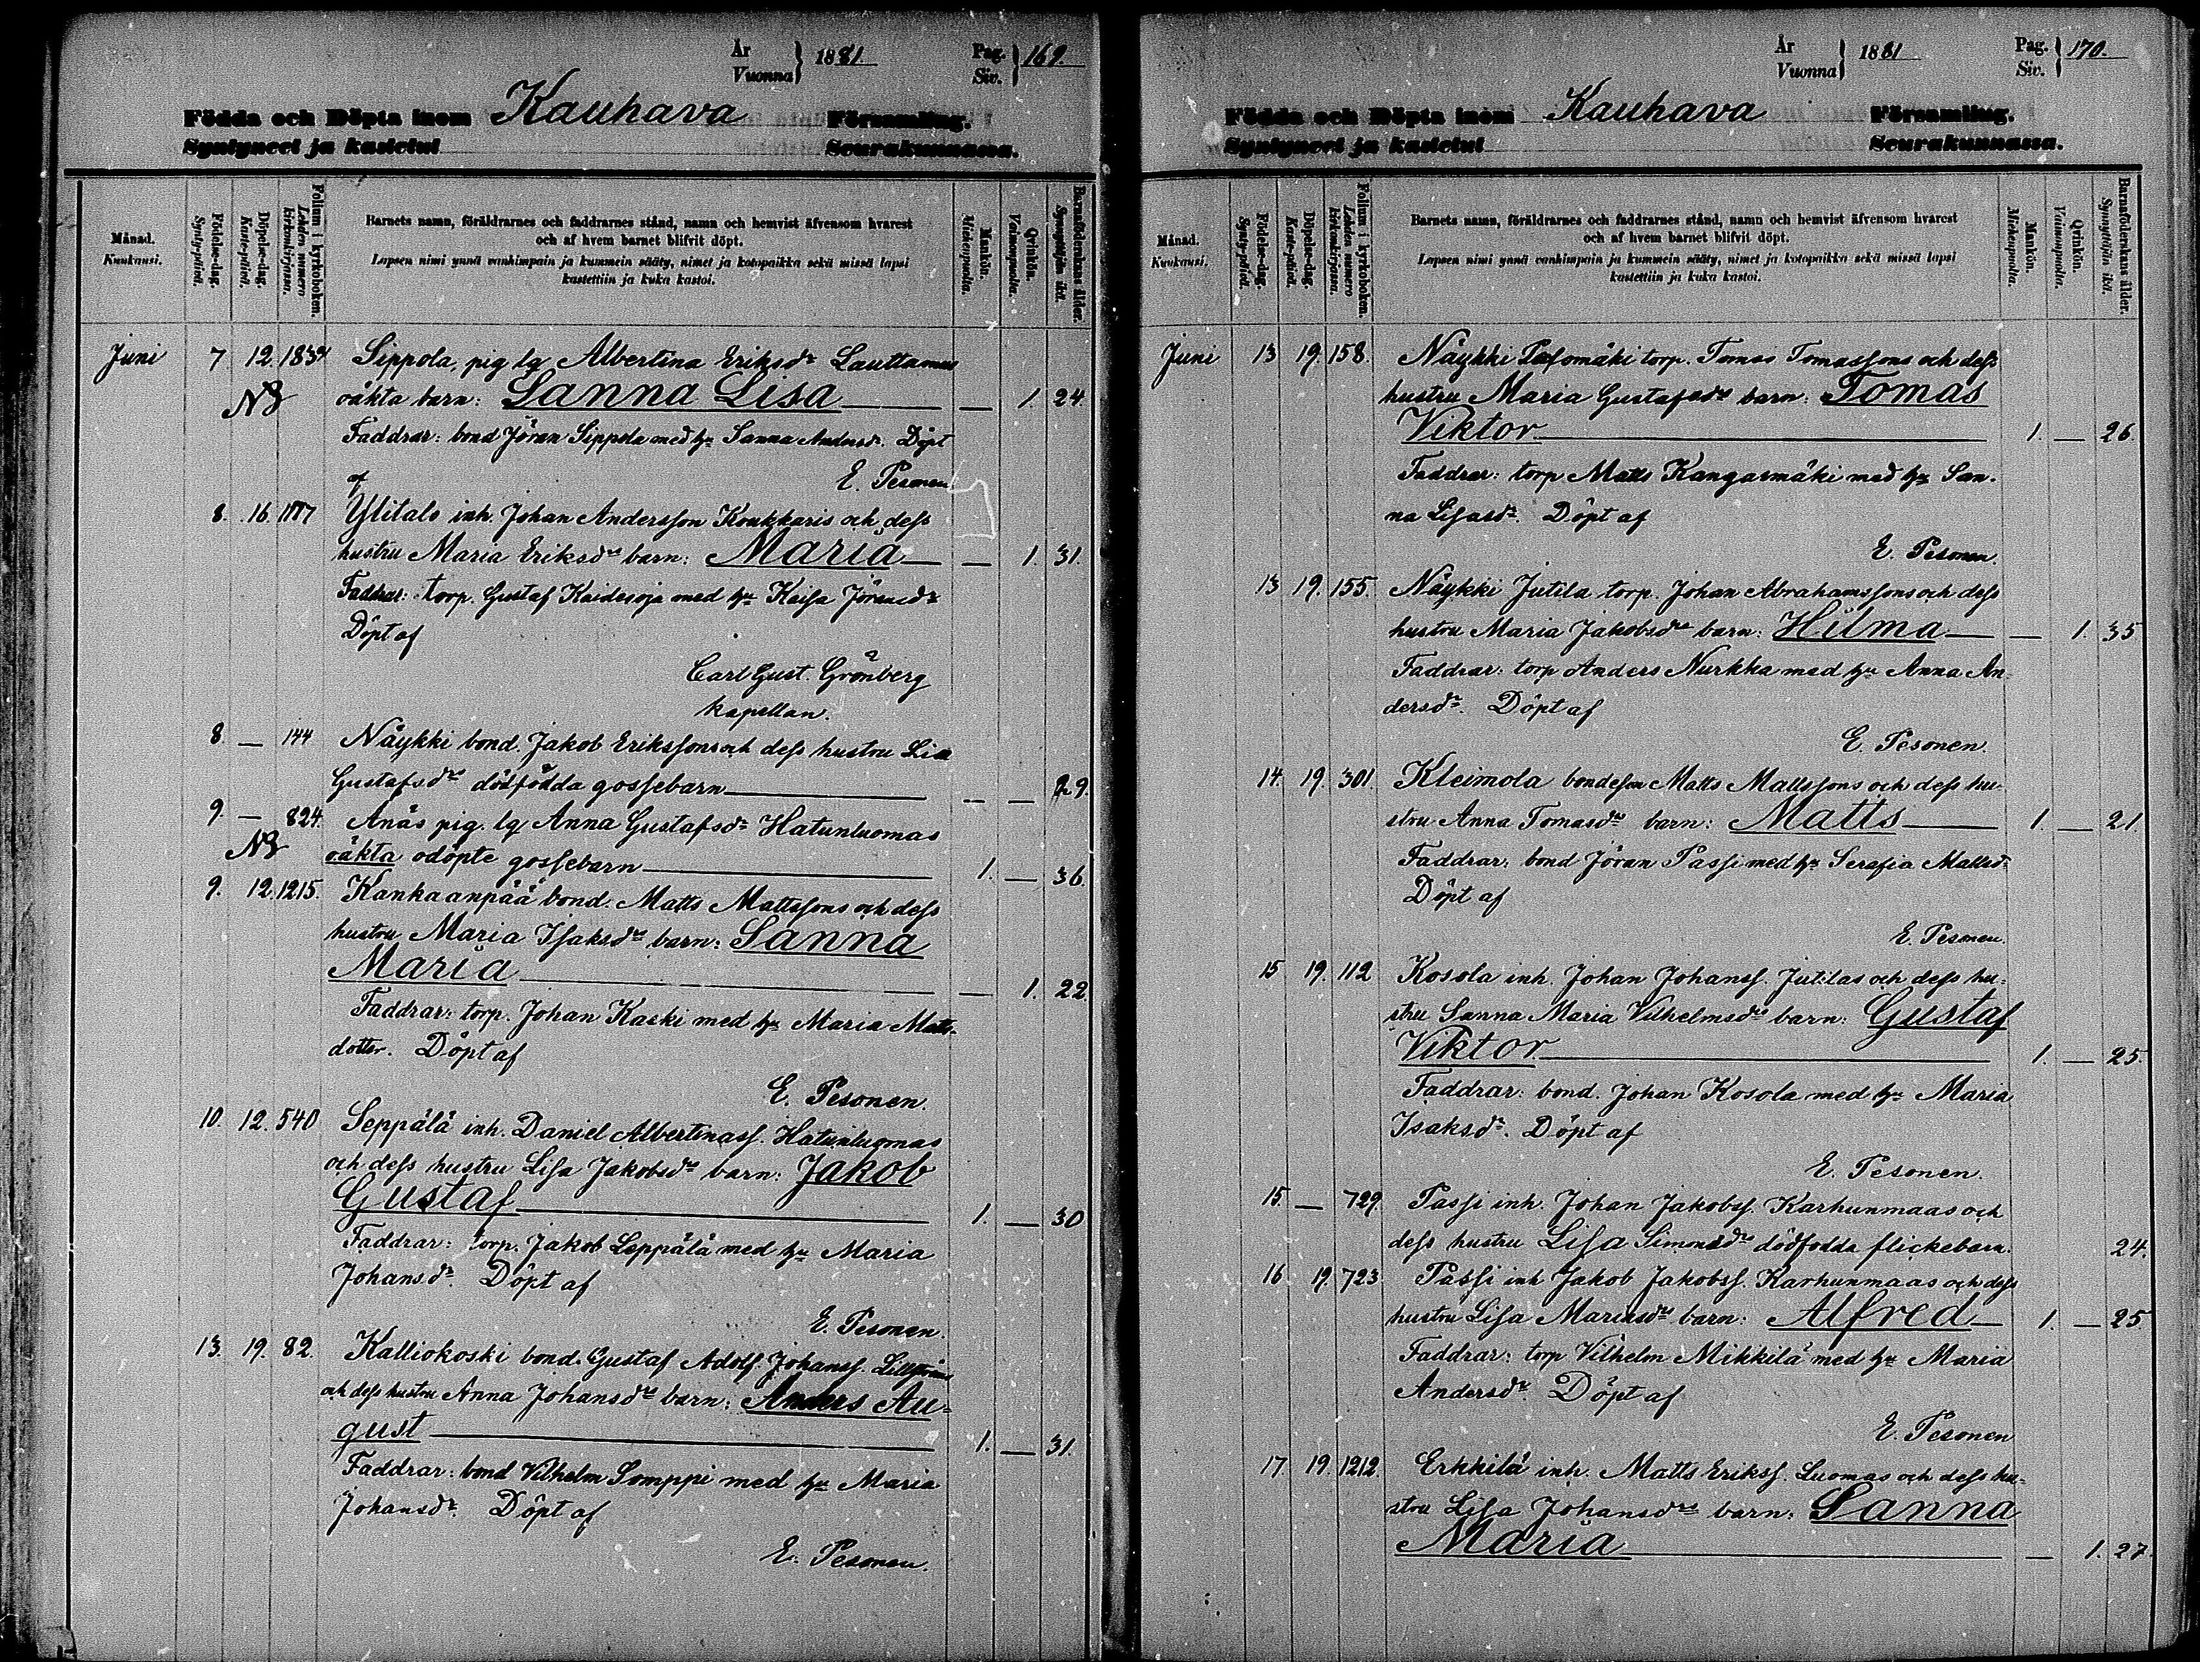 År
Vuonna } 1881.
Pag.
Siv. } 169.
Födda och Döpta inom Kauhava Församling.
Syntyneet ja kastetut Seurakunnassa.
Månad.
Kuukausi.
Födelse-dag.
Synty-päivä.
Döpelse-dag.
Kaste-päivä.
Folium i kyrkoboken.
Lehden numero kirkonkirjassa.
Barnets namn, föräldrarnes och faddrarnes stånd, namn och hemvist äfvensom hvarest
och af hvem barnet blifvit döpt.
Lapsen nimi ynnä vanhimpain ja kummein sääty, nimet ja kotopaikka sekä missä lapsi
kastettiin ja kuka kastoi.
Mankön.
Miehenpuolta.
Qvinkön.
Vaimonpuolta.
Barnaföderskans ålder.
Synnyttäjän ikä.
Juni 7. 12. Sippola, pig lg Albertina Eriksdr Lauttamus
NB oäkta barn: Sanna Lisa — 1. 24.
Faddrar: bond Jöran Sippola med hu Sanna Andersdr. Döpt
af E. Pesonen.
8. 16. Ylitalo inh. Johan Andersson Koukkaris och dess
hustru Maria Eriksdrs barn: Maria — 1. 31.
Faddrar: torp. Gustaf Kaidesoja med hu Kaisa Jöransdr
Döpt af
Carl Gust. Grönberg
kapellan.
8 — 144 Näykki bond. Jakob Erikssons och dess hustru Lisa
Gustafsdrs dödfödda gossebarn — — 29.
9. — 824. Anäs pig. lg Anna Gustafsdr Hatunluomas
NB oäkta odöpte gossebarn 1. — 36.
9. 12. 1215. Kankaanpää bond. Matts Mattssons och dess
hustru Maria Isaksdrs barn: Sanna
Maria — 1. 22.
Faddrar: torp. Johan Kaski med hu Maria Matts-
dotter. Döpt af
E. Pesonen.
10. 12. 540 Seppälä inh. Daniel Albertinass. Hatunluomas
och dess hustru Lisa Jakobsdrs barn: Jakob
Gustaf 1. — 30
Faddrar: torp. Jakob Leppälä med hu Maria
Johansdr. Döpt af
E. Pesonen.
13. 19. 82. Kalliokoski bond. Gustaf Adolf Johanss.
och dess hustru Anna Johansdrs barn: Anders Au=
gust 1. — 31.
Faddrar: bond Vilhelm Somppi med hu Maria
Johansdr. Döpt af
E. Pesonen.
År
Vuonna } 1881
Pag.
Siv. } 170.
Födda och Döpta inom Kauhava Församling.
Syntyneet ja kastetut Seurakunnassa.
Månad.
Kuukausi.
Födelse-dag.
Synty-päivä.
Döpelse-dag.
Kaste-päivä.
Folium i kyrkoboken.
Lehden numero kirkonkirjassa.
Barnets namn, föräldrarnes och faddrarnes stånd, namn och hemvist äfvensom hvarest
och af hvem barnet blifvit döpt.
Lapsen nimi ynnä vanhimpain ja kummein sääty, nimet ja kotopaikka sekä missä lapsi
kastettiin ja kuka kastoi.
Mankön.
Miehenpuolta.
Qvinkön.
Vaimonpuolta.
Barnaföderskans ålder.
Synnyttäjän ikä.
Juni 13 19. 158. Näykki torp. Tomas Tomassons och dess
hustru Maria Gustafsdrs barn: Tomas
Viktor 1. — 26.
Faddrar: torp Matts Kangasmäki med hu San-
na Lisasdr. Döpt af
E. Pesonen.
13 19. 155. Näykki Jutila torp. Johan Abrahamssons och dess
hustru Maria Jakobsdrs barn: Hilma — 1. 35
Faddrar: torp Anders Nurkka med hu Anna An-
dersdr. Döpt af
E. Pesonen.
14. 19. 301. Kleimola bondeson Matts Mattssons och dess hu-
stru Anna Tomasdrs barn: Matts 1. — 21.
Faddrar: bond Jöran Passi med hu Serafia Mattsd:
Döpt af
E. Pesonen.
15 19. 112 Kosola inh. Johan Johanss. Jutilas och dess hu-
stru Sanna Maria Vilhelmsdrs barn: Gustaf
Viktor 1. — 25.
Faddrar: bond. Johan Kosola med hu Maria
Isaksdr. Döpt af
E. Pesonen.
15. — 729. Passi inh. Johan Jakobss. Karhunmaas och
dess hustru Lisa Simonsdrs dödfödda flickebarn. 24.
16 19. 723. Passi inh Jakob Jakobss. Karhunmaas och dess
hustru Lisa Mariasdrs barn: Alfred 1. — 25
Faddrar: torp Vilhelm Mikkilä med hu Maria
Andersdr Döpt af
E. Pesonen
17. 19. 1212. Erkkilä inh. Matts Erikss. Luomas och dess hu-
stru Lisa Johansdrs barn: Sanna
Maria — 1. 27.